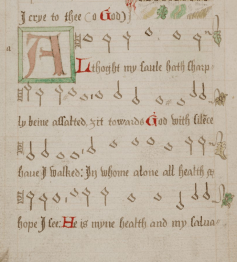 I crye to thee (o God)
Althoght my saule hath sharp-
ly beine assalted, zit towards God with silēce
haue I walked: In whome alone all health &
hope I se: He is myne health and my salua-